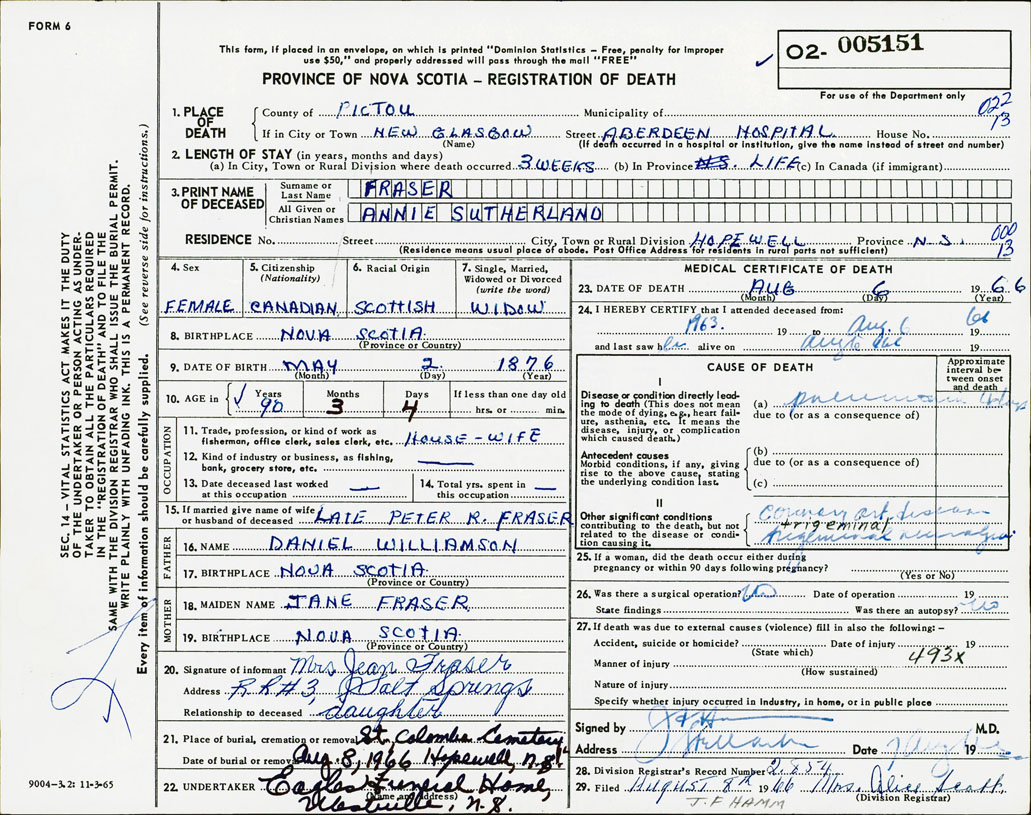 FORM 6
This form, if placed in an envelope, on which is printed "Dominion Statistics – Free, penalty for improper
use $50," and properly addressed will pass through the mail "FREE"
PROVINCE OF NOVA SCOTIA – REGISTRATION OF DEATH
✓ 02- 005151
For use of the Department only
022
13
1. PLACE OF DEATH
County of PICTOU Municipality of
If in City or Town NEW GLASGOW Street ABERDEEN HOSPITAL House No.
(Name) (If death occurred in a hospital or institution, give the name instead of street and number)
2. LENGTH OF STAY (in years, months and days)
(a) In City, Town or Rural Division where death occurred 3 WEEKS (b) In Province N.S. LIFE (c) In Canada (if immigrant)
3. PRINT NAME OF DECEASED
Surname or Last Name FRASER
All Given or Christian Names ANNIE SUTHERLAND
RESIDENCE No. Street City, Town or Rural Division HOPEWELL Province N.S.
(Residence means usual place of abode. Post Office Address for residents in rural parts not sufficient)
000
13
4. Sex
FEMALE
5. Citizenship
(Nationality)
CANADIAN
6. Racial Origin
SCOTTISH
7. Single, Married,
Widowed or Divorced
(write the word)
WIDOW
8. BIRTHPLACE NOVA SCOTIA
(Province or Country)
9. DATE OF BIRTH MAY 2 1876
(Month) (Day) (Year)
10. AGE in ✓ Years Months Days If less than one day old
90 3 4 hrs. or min.
OCCUPATION
11. Trade, profession, or kind of work as
fisherman, office clerk, sales clerk, etc. HOUSE-WIFE
12. Kind of industry or business, as fishing,
bank, grocery store, etc. —
13. Date deceased last worked
at this occupation —
14. Total yrs. spent in
this occupation —
15. If married give name of wife
or husband of deceased LATE PETER R. FRASER
FATHER
16. NAME DANIEL WILLIAMSON
17. BIRTHPLACE NOVA SCOTIA
(Province or Country)
MOTHER
18. MAIDEN NAME JANE FRASER
19. BIRTHPLACE NOVA SCOTIA
(Province or Country)
20. Signature of informant Mrs Jean Fraser
Address R R #3, Salt Springs
Relationship to deceased daughter
21. Place of burial, cremation or removal St. Columba Cemetery
Date of burial or removal Aug. 8, 1966 Hopewell, N.S.
22. UNDERTAKER Eagles Funeral Home,
(Name and Address)
Westville, N.S.
MEDICAL CERTIFICATE OF DEATH
23. DATE OF DEATH AUG 6 1966
(Month) (Day) (Year)
24. I HEREBY CERTIFY that I attended deceased from:
1963. 19 to Aug. 6 19 66
and last saw her alive on 19
CAUSE OF DEATH
Approximate
interval be-
tween onset
and death
I
Disease or condition directly lead-
ing to death (This does not mean
the mode of dying, e.g., heart fail-
ure, asthenia, etc. It means the
disease, injury, or complication
which caused death.)
(a) pneumonia
due to (or as a consequence of)
Antecedent causes
Morbid conditions, if any, giving
rise to the above cause, stating
the underlying condition last.
(b)
due to (or as a consequence of)
(c)
II
Other significant conditions
contributing to the death, but not
related to the disease or condi-
tion causing it.
coronary art. disease
trigeminal
trigeminal neuralgia
25. If a woman, did the death occur either during
pregnancy or within 90 days following pregnancy?
(Yes or No)
26. Was there a surgical operation? No Date of operation 19
State findings Was there an autopsy? no
27. If death was due to external causes (violence) fill in also the following: –
Accident, suicide or homicide? Date of injury 19
(State which)
493x
Manner of injury
(How sustained)
Nature of injury
Specify whether injury occurred in industry, in home, or in public place
Signed by M.D.
Address Date 19
28. Division Registrar's Record Number 2854
29. Filed AUGUST 8th 1966 Mrs. Alice Scott.
(Division Registrar)
J.F HAMM
SEC. 14 – VITAL STATISTICS ACT MAKES IT THE DUTY
OF THE UNDERTAKER OR PERSON ACTING AS UNDER-
TAKER TO OBTAIN ALL THE PARTICULARS REQUIRED
IN THE "REGISTRATION OF DEATH" AND TO FILE THE
SAME WITH THE DIVISION REGISTRAR WHO SHALL ISSUE THE BURIAL PERMIT.
WRITE PLAINLY WITH UNFADING INK. THIS IS A PERMANENT RECORD.
Every item of information should be carefully supplied. (See reverse side for instructions.)
9004-3.2: 11-3-65